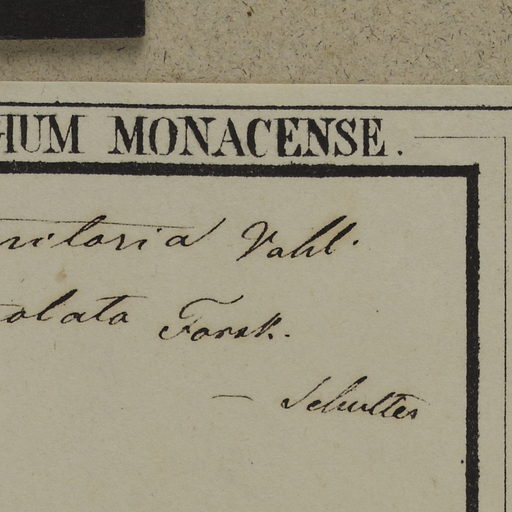 HUM MONACENSE.
nitoria Vahl.
olata Forsk.
— Schultes